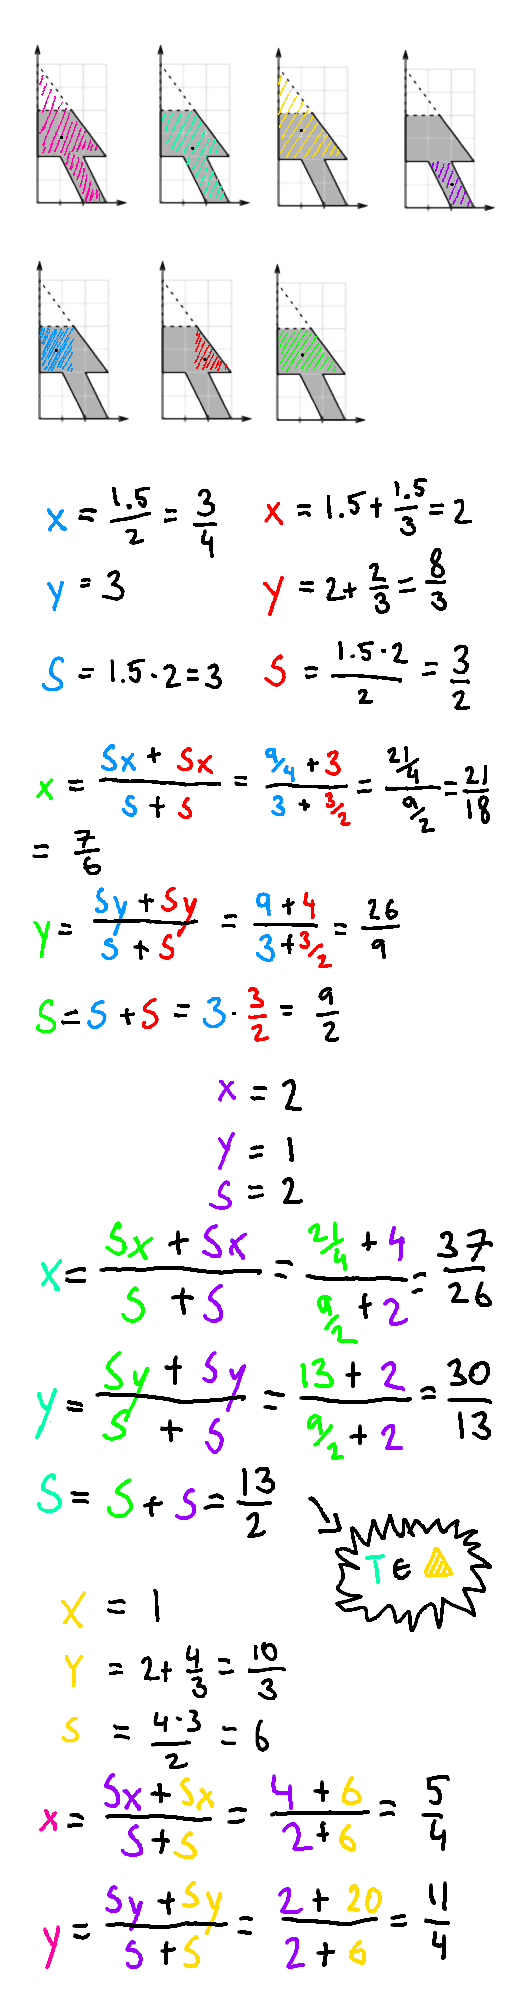 x = 1.5/2 = 3/4
x = 1.5 + 1.5/3 = 2
y = 3
y = 2 + 2/3 = 8/3
S = 1.5 · 2 = 3
S = 1.5 · 2/2 = 3/2
x = Sx + Sx/S + S = 9/4 + 3/3 + 3/2 = 21/4/9/2 = 21/18
= 7/6
y = Sy + Sy/S + S = 9 + 4/3 + 3/2 = 26/9
S = S + S = 3 · 3/2 = 9/2
x = 2
y = 1
S = 2
x = Sx + Sx/S + S = 21/4 + 4/9/2 + 2 = 37/26
y = Sy + Sy/S + S = 13 + 2/9/2 + 2 = 30/13
S = S + S = 13/2
T ∈ △
x = 1
Y = 2 + 4/3 = 10/3
S = 4 · 3/2 = 6
x = Sx + Sx/S + S = 4 + 6/2 + 6 = 5/4
y = Sy + Sy/S + S = 2 + 20/2 + 6 = 11/4